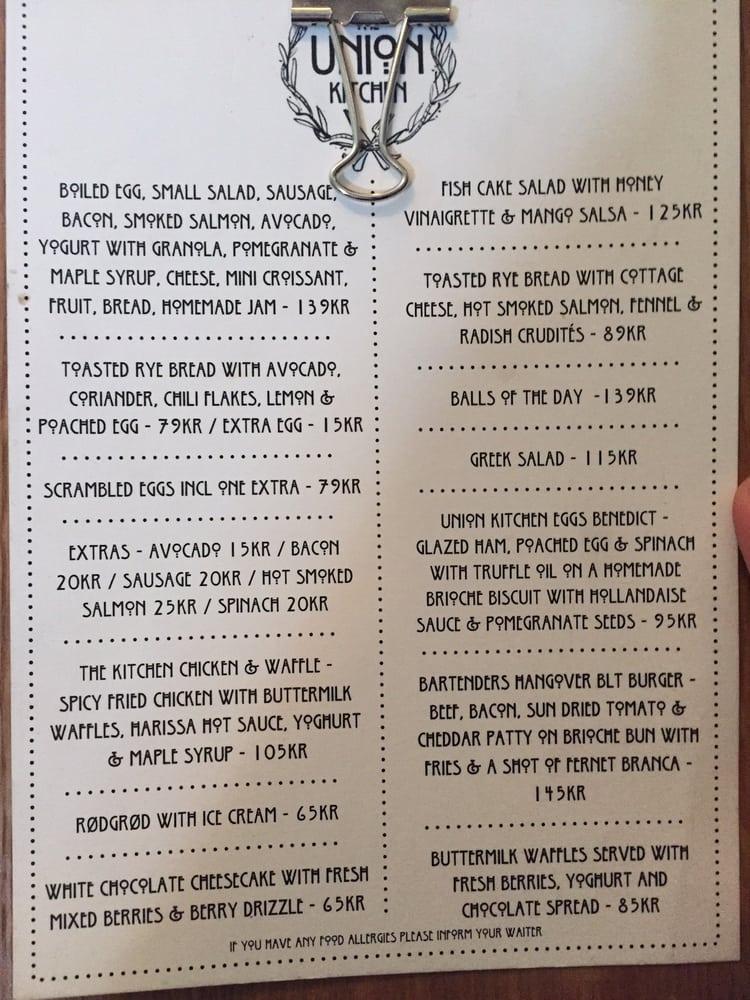 THE
UNION
KITCHEN
BOILED EGG, SMALL SALAD, SAUSAGE,
BACON, SMOKED SALMON, AVOCADO,
YOGURT WITH GRANOLA, POMEGRANATE &
MAPLE SYRUP, CHEESE, MINI CROISSANT,
FRUIT, BREAD, HOMEMADE JAM - 139KR
TOASTED RYE BREAD WITH AVOCADO,
CORIANDER, CHILI FLAKES, LEMON &
POACHED EGG - 79KR / EXTRA EGG - 15KR
SCRAMBLED EGGS INCL ONE EXTRA - 79KR
EXTRAS - AVOCADO 15KR / BACON
20KR / SAUSAGE 20KR / HOT SMOKED
SALMON 25KR / SPINACH 20KR
THE KITCHEN CHICKEN & WAFFLE -
SPICY FRIED CHICKEN WITH BUTTERMILK
WAFFLES, HARISSA HOT SAUCE, YOGHURT
& MAPLE SYRUP - 105KR
RØDGRØD WITH ICE CREAM - 65KR
WHITE CHOCOLATE CHEESECAKE WITH FRESH
MIXED BERRIES & BERRY DRIZZLE - 65KR
FISH CAKE SALAD WITH HONEY
VINAIGRETTE & MANGO SALSA - 125KR
TOASTED RYE BREAD WITH COTTAGE
CHEESE, HOT SMOKED SALMON, FENNEL &
RADISH CRUDITÉS - 89KR
BALLS OF THE DAY -139KR
GREEK SALAD - 115KR
UNION KITCHEN EGGS BENEDICT -
GLAZED HAM, POACHED EGG & SPINACH
WITH TRUFFLE OIL ON A HOMEMADE
BRIOCHE BISCUIT WITH HOLLANDAISE
SAUCE & POMEGRANATE SEEDS - 95KR
BARTENDERS HANGOVER BLT BURGER -
BEEF, BACON, SUN DRIED TOMATO &
CHEDDAR PATTY ON BRIOCHE BUN WITH
FRIES & A SHOT OF FERNET BRANCA -
145KR
BUTTERMILK WAFFLES SERVED WITH
FRESH BERRIES, YOGHURT AND
CHOCOLATE SPREAD - 85KR
IF YOU HAVE ANY FOOD ALLERGIES PLEASE INFORM YOUR WAITER